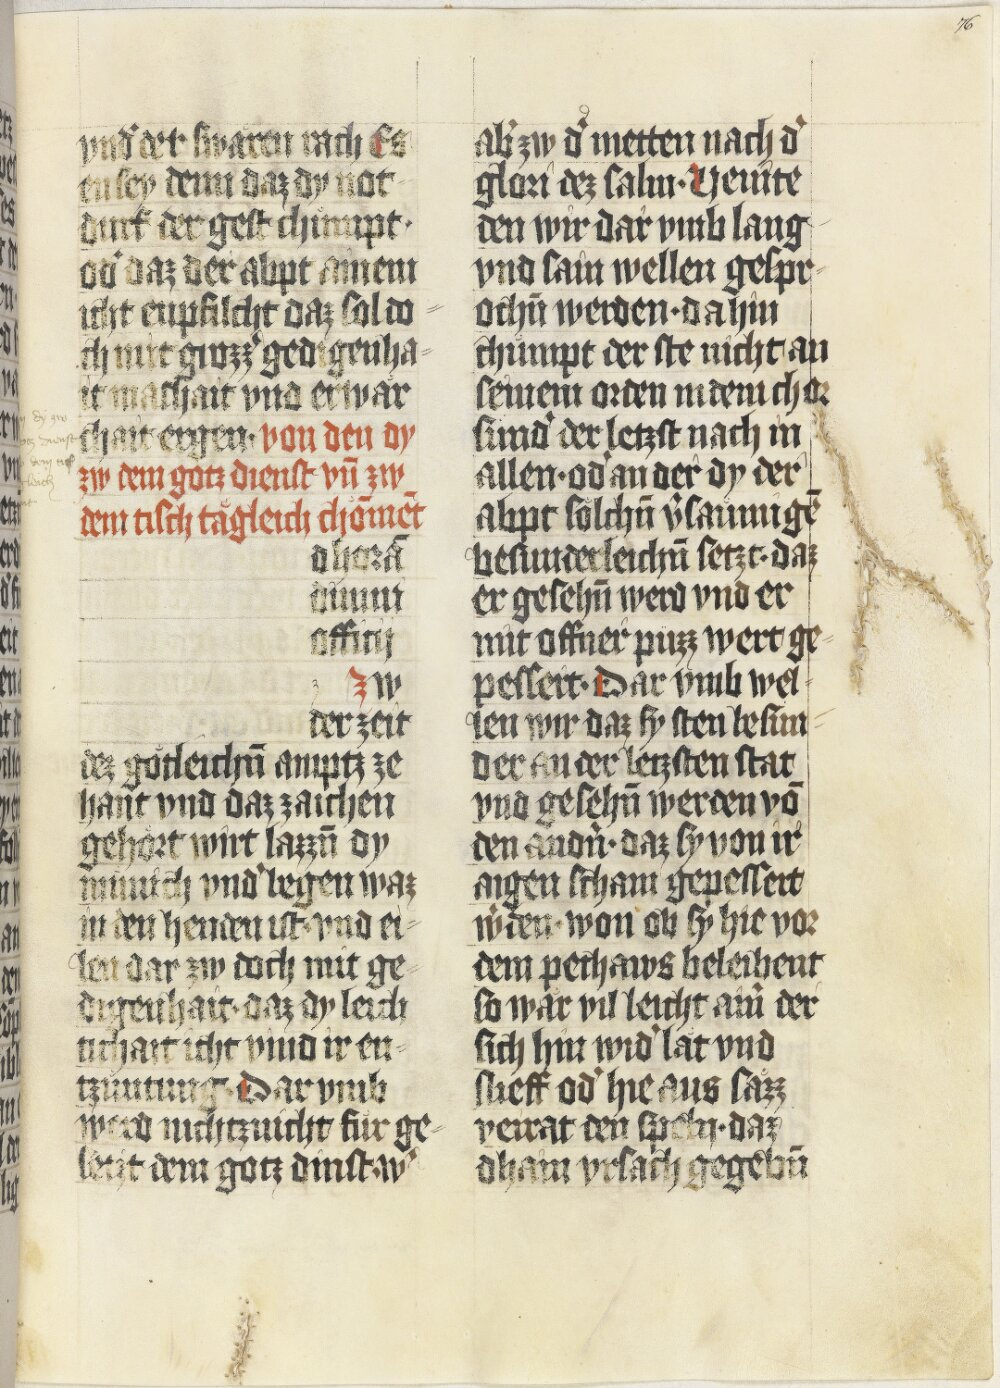 76
vnd der swaren rach Es
en sey denn daz dy not
durft der gest chumpt·
od daz der abpt ainem
icht enpfilcht daz sol do=
ch mit grozz gedigenha=
it mashait vnd erwar
chait ergen· von den dy
zw dem gotz dienst vn̄ zw
dem tisch tägleich chömēt
d horā
diuini
officij
Zw
der zeit
dez gotleichn̄ amptz ze
hant vnd daz zaichen
gehört wirt lazzn̄ dy
münich vnd legen waz
in den henden ist· vnd ei=
len dar zw doch mit ge=
digenhait· daz dy leich
tichait icht vind ir en=
tzuntung· Dar vmb
werd nichtznicht für ge=
letzt dem gotz dinst· w
ab zw d metten nach d
glori dez salm· Venite
den wir dar vmb lang
vnd sain wellen gespr=
ochn̄ werden· da hin
chumpt der ste nicht an
seinem orden in dem chor
sund der letzst nach in
allen· od an der dy der
abpt sölchn̄ vsaumigē
besunderleichn̄ setzt· daz
er gesehn̄ werd vnd er
mit offner puzz wert ge=
pessert· Dar vmb wel=
len wir daz sy sten besun=
der an der letzsten stat
vnd gesehn̄ werden vō
den andn̄· daz sy von ir
aigen scham gepessert
wden· won ob sy hie vor
dem pethaws beleibent
so wär vil leicht ain̄ der
sich hin wid lät vnd
slieff od hie aus säzz
daz
dhain vrsach gegebn̄